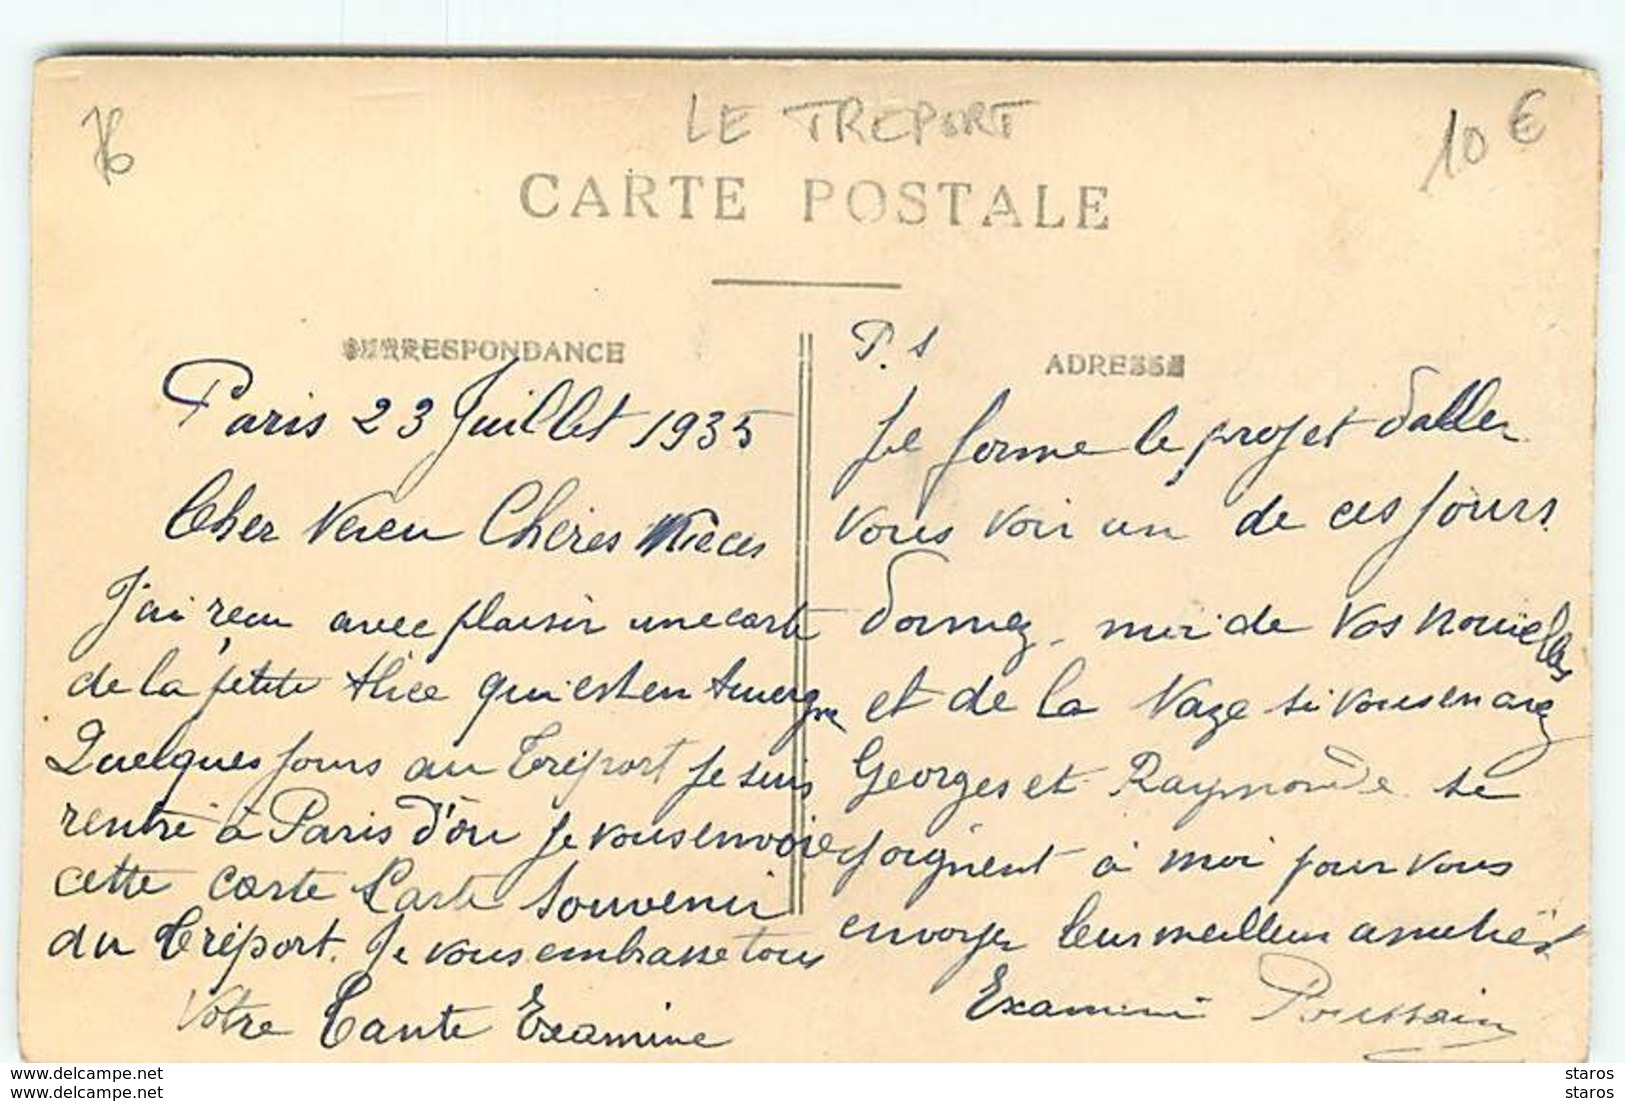 76
LE TREPORT
10 €
CARTE POSTALE
CORRESPONDANCE
Paris 23 Juillet 1935
Cher Neveu Chères Nièces
J'ai reçu avec plaisir une carte
de la petite Alice qui est en
Quelques jours au Tréport je suis
rentré à Paris d'où je vous envoie
cette carte Carte Souvenir
du Tréport. Je vous embrasse tous
Votre Tante Examine
P.S
ADRESSE
Je forme le projet d'aller
vous voir un de ces jours.
donnez-moi de vos nouvelles
et de la Naze si vous en avez
Georges et Raymonde se
joignent à moi pour vous
envoyer leur meilleur amitiés
Examine Poussain
www.delcampe.net
www.delcampe.net
staros
staros